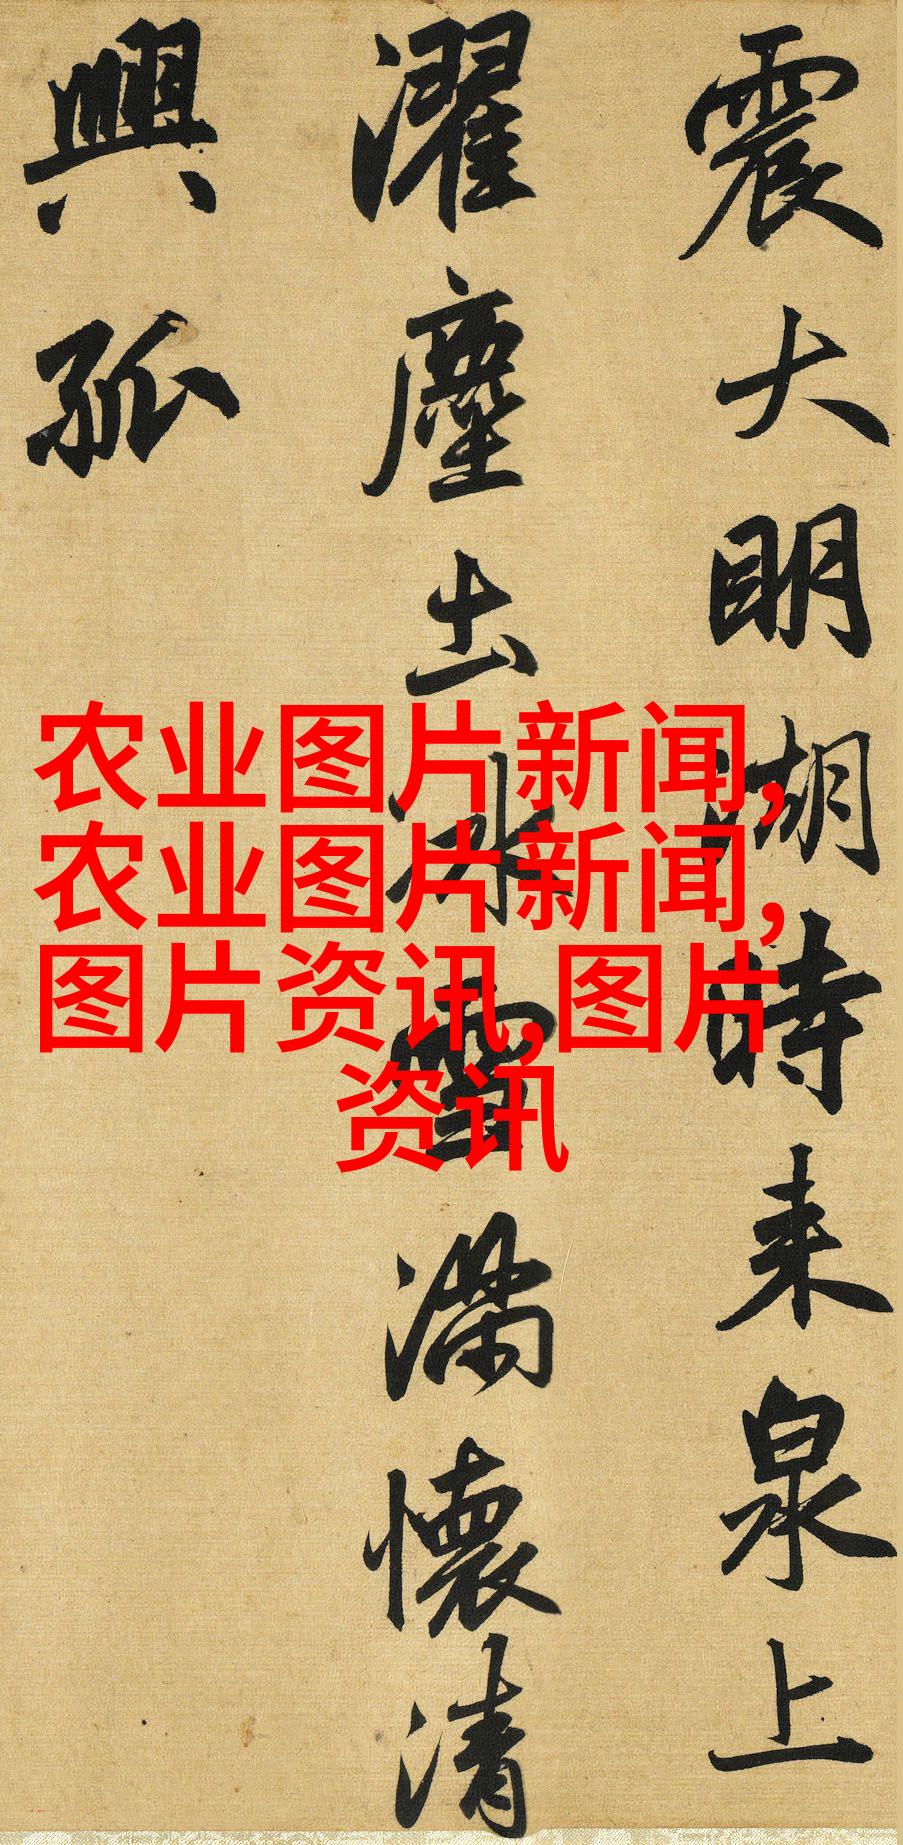 震大明湖時来泉上
濯塵出冰雪滿懷清
興孤
农业图片新闻,
农业图片新闻,
图片资讯,图片
资讯